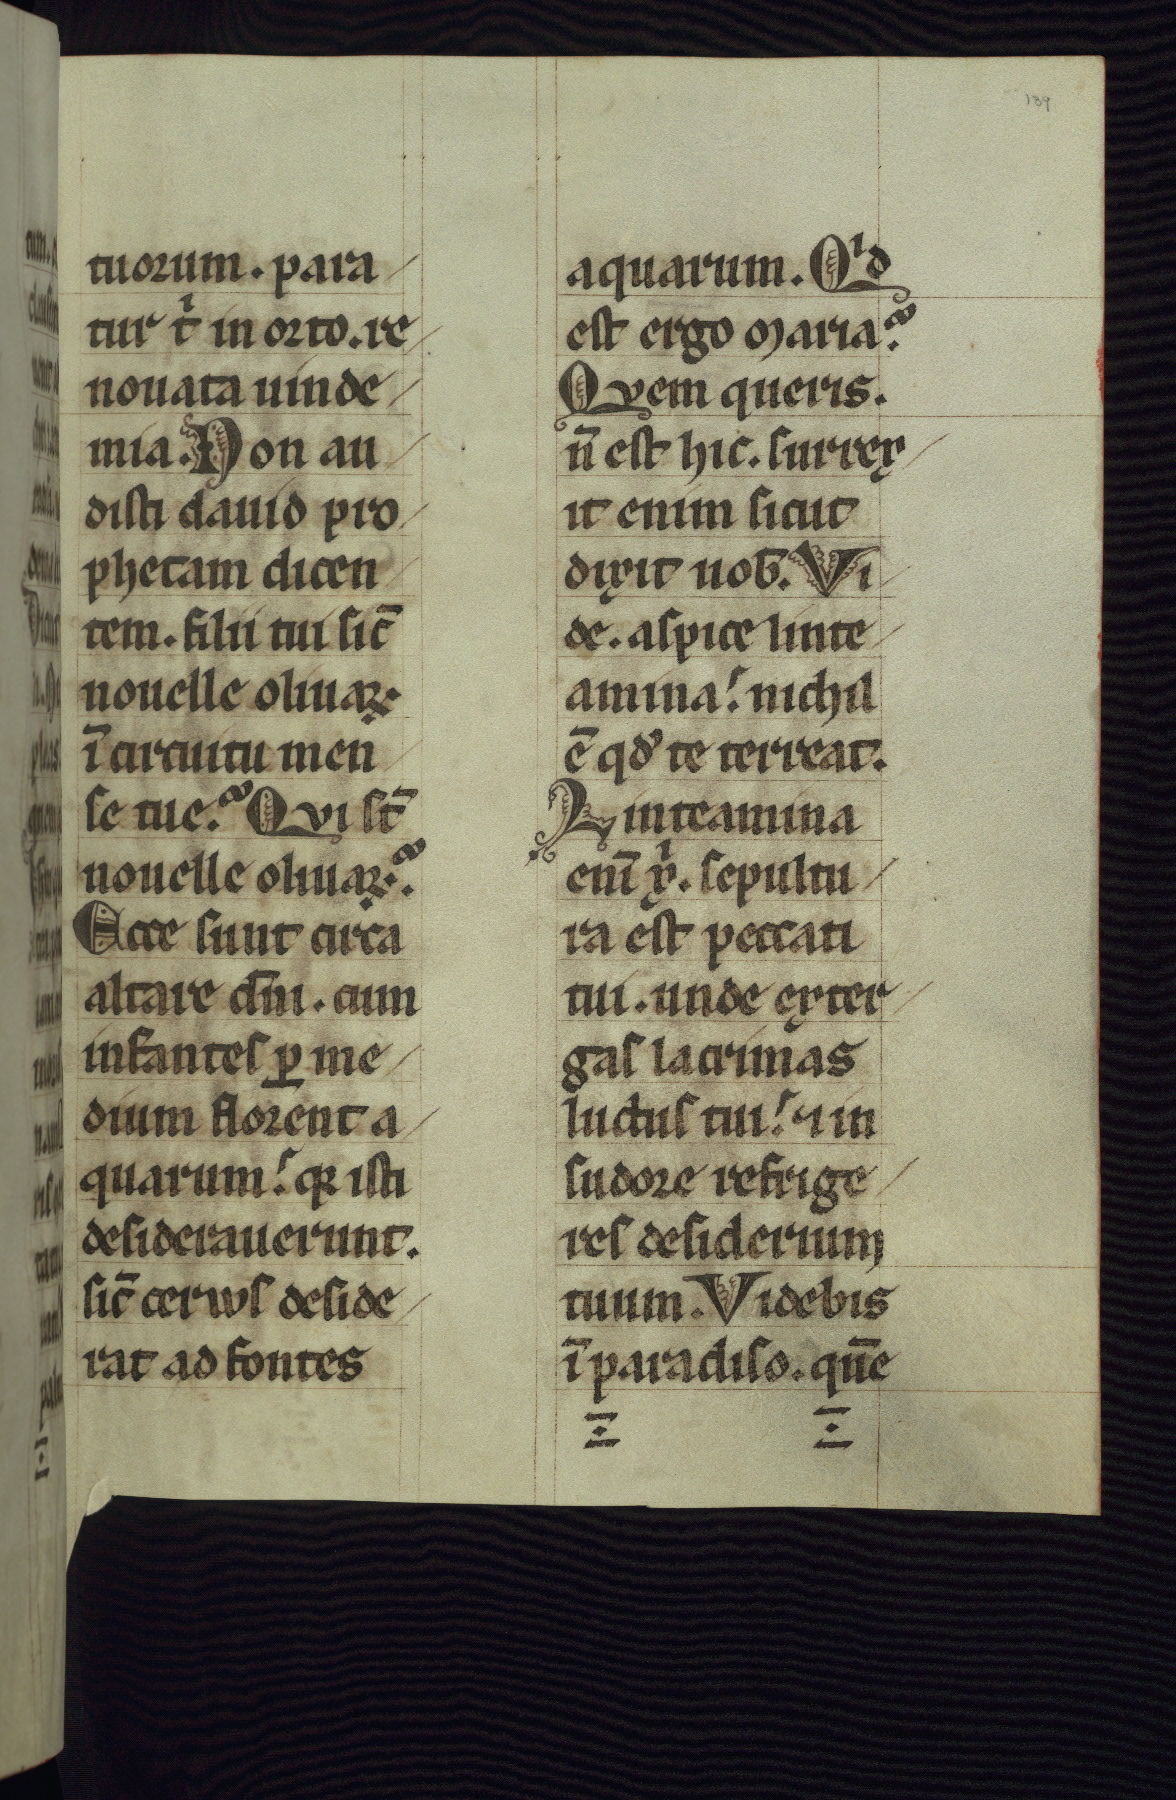 139
tuorum. para
tur tͥ in orto. re
nouata uinde
mia. Non au
disti dauid pro
phetam dicen
tem. filii tui sic̄
nouelle oliuaꝝ.
ī circuitu men
se tue? Qvi st̄
nouelle oliuaꝝ?
Ecce sunt circa
altare dm̄i. cum
infantes ꝑ me
dium florent a
quarum. qꝛ isti
desiderauerunt.
sic̄ cerws deside
rat ad fontes
aquarum. Qͥd
est ergo maria?
Qvem queris.
n̄ est hic. surrex
it enim sicut
dixit uob̄. Vi
de. aspice linte
amina. nichil
ē qd̓ te terreat.
Linteamina
enī xͥ. sepultu
ra est peccati
tui. unde exter
gas lacrimas
luctus tui. ⁊ in
sudore refrige
res desiderium
tuum. Videbis
ī paradiso. quē